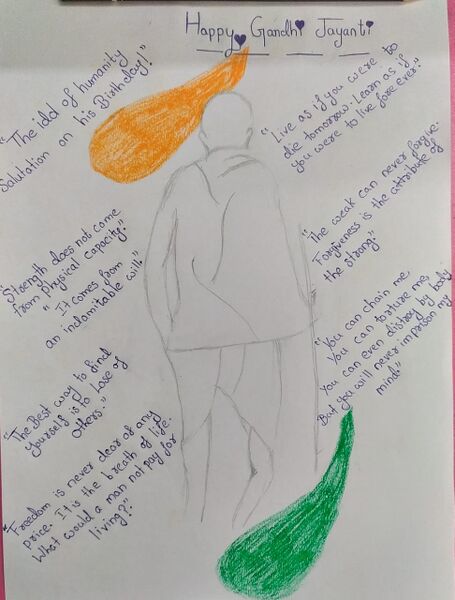 Happy Gandhi Jayanti
"The idol of humanity
Salutation on his Birthday!"
"Live as if you were to
die tomorrow. Learn as if
you were to live fore ever."
Strength does not come
from Physical capacity."
"It comes from
an indamitable will"
"The weak can never forgive.
Forgiveness is the attribute of
the strong."
"You can chain me
You can torture me,
You can even distroy by body
But you will never imprison my
mind"
"The Best way to find
yourself is to Lose of
Others."
"Freedom is never dear of any
price. It is the breath of life.
What would a man not pay for
living?"